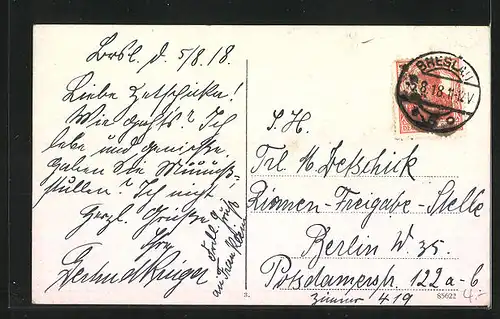 Brsl. d. 5/8.18.
Liebe Zetschicke!
Wie gehts? Ich
lebe und geniesse
haben Sie
stullen? Ich nicht!
Herzl. Grüsse
Ihre
Gertrud Krüger
Frdl. Gruß
an Frau
BRESLAU
5.8.18.11-12V
S. H.
Frl. M. Zetschick
Riemen-Freigabe-Stelle
Berlin W 35.
Potsdamerstr. 122a-b
Zimmer 419
3.
85622
4,-